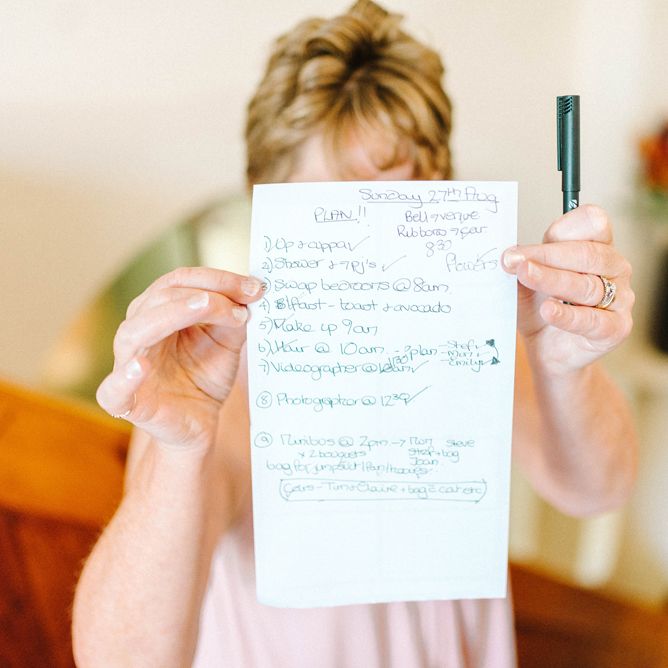 Sunday 27th Aug
PLAN!!
Bell → venue
Ribbons → car
830
Flowers
1) Up & cuppa ✓
2) Shower & → PJ's ✓
3) Swap bedrooms @ 8am
4) B/fast - toast & avocado
5) Make up 9am
6) Hair @ 10am → plan - Stef
- Mom
- Emily
7) Videographer @
⑧ Photographer @ 1230 ✓
⑨ Minibus @ 2pm → Mum Steve
x 2 bouquets Stef + bag
bag for jumpsuit Joan
Cars - Tim & Claire + bag